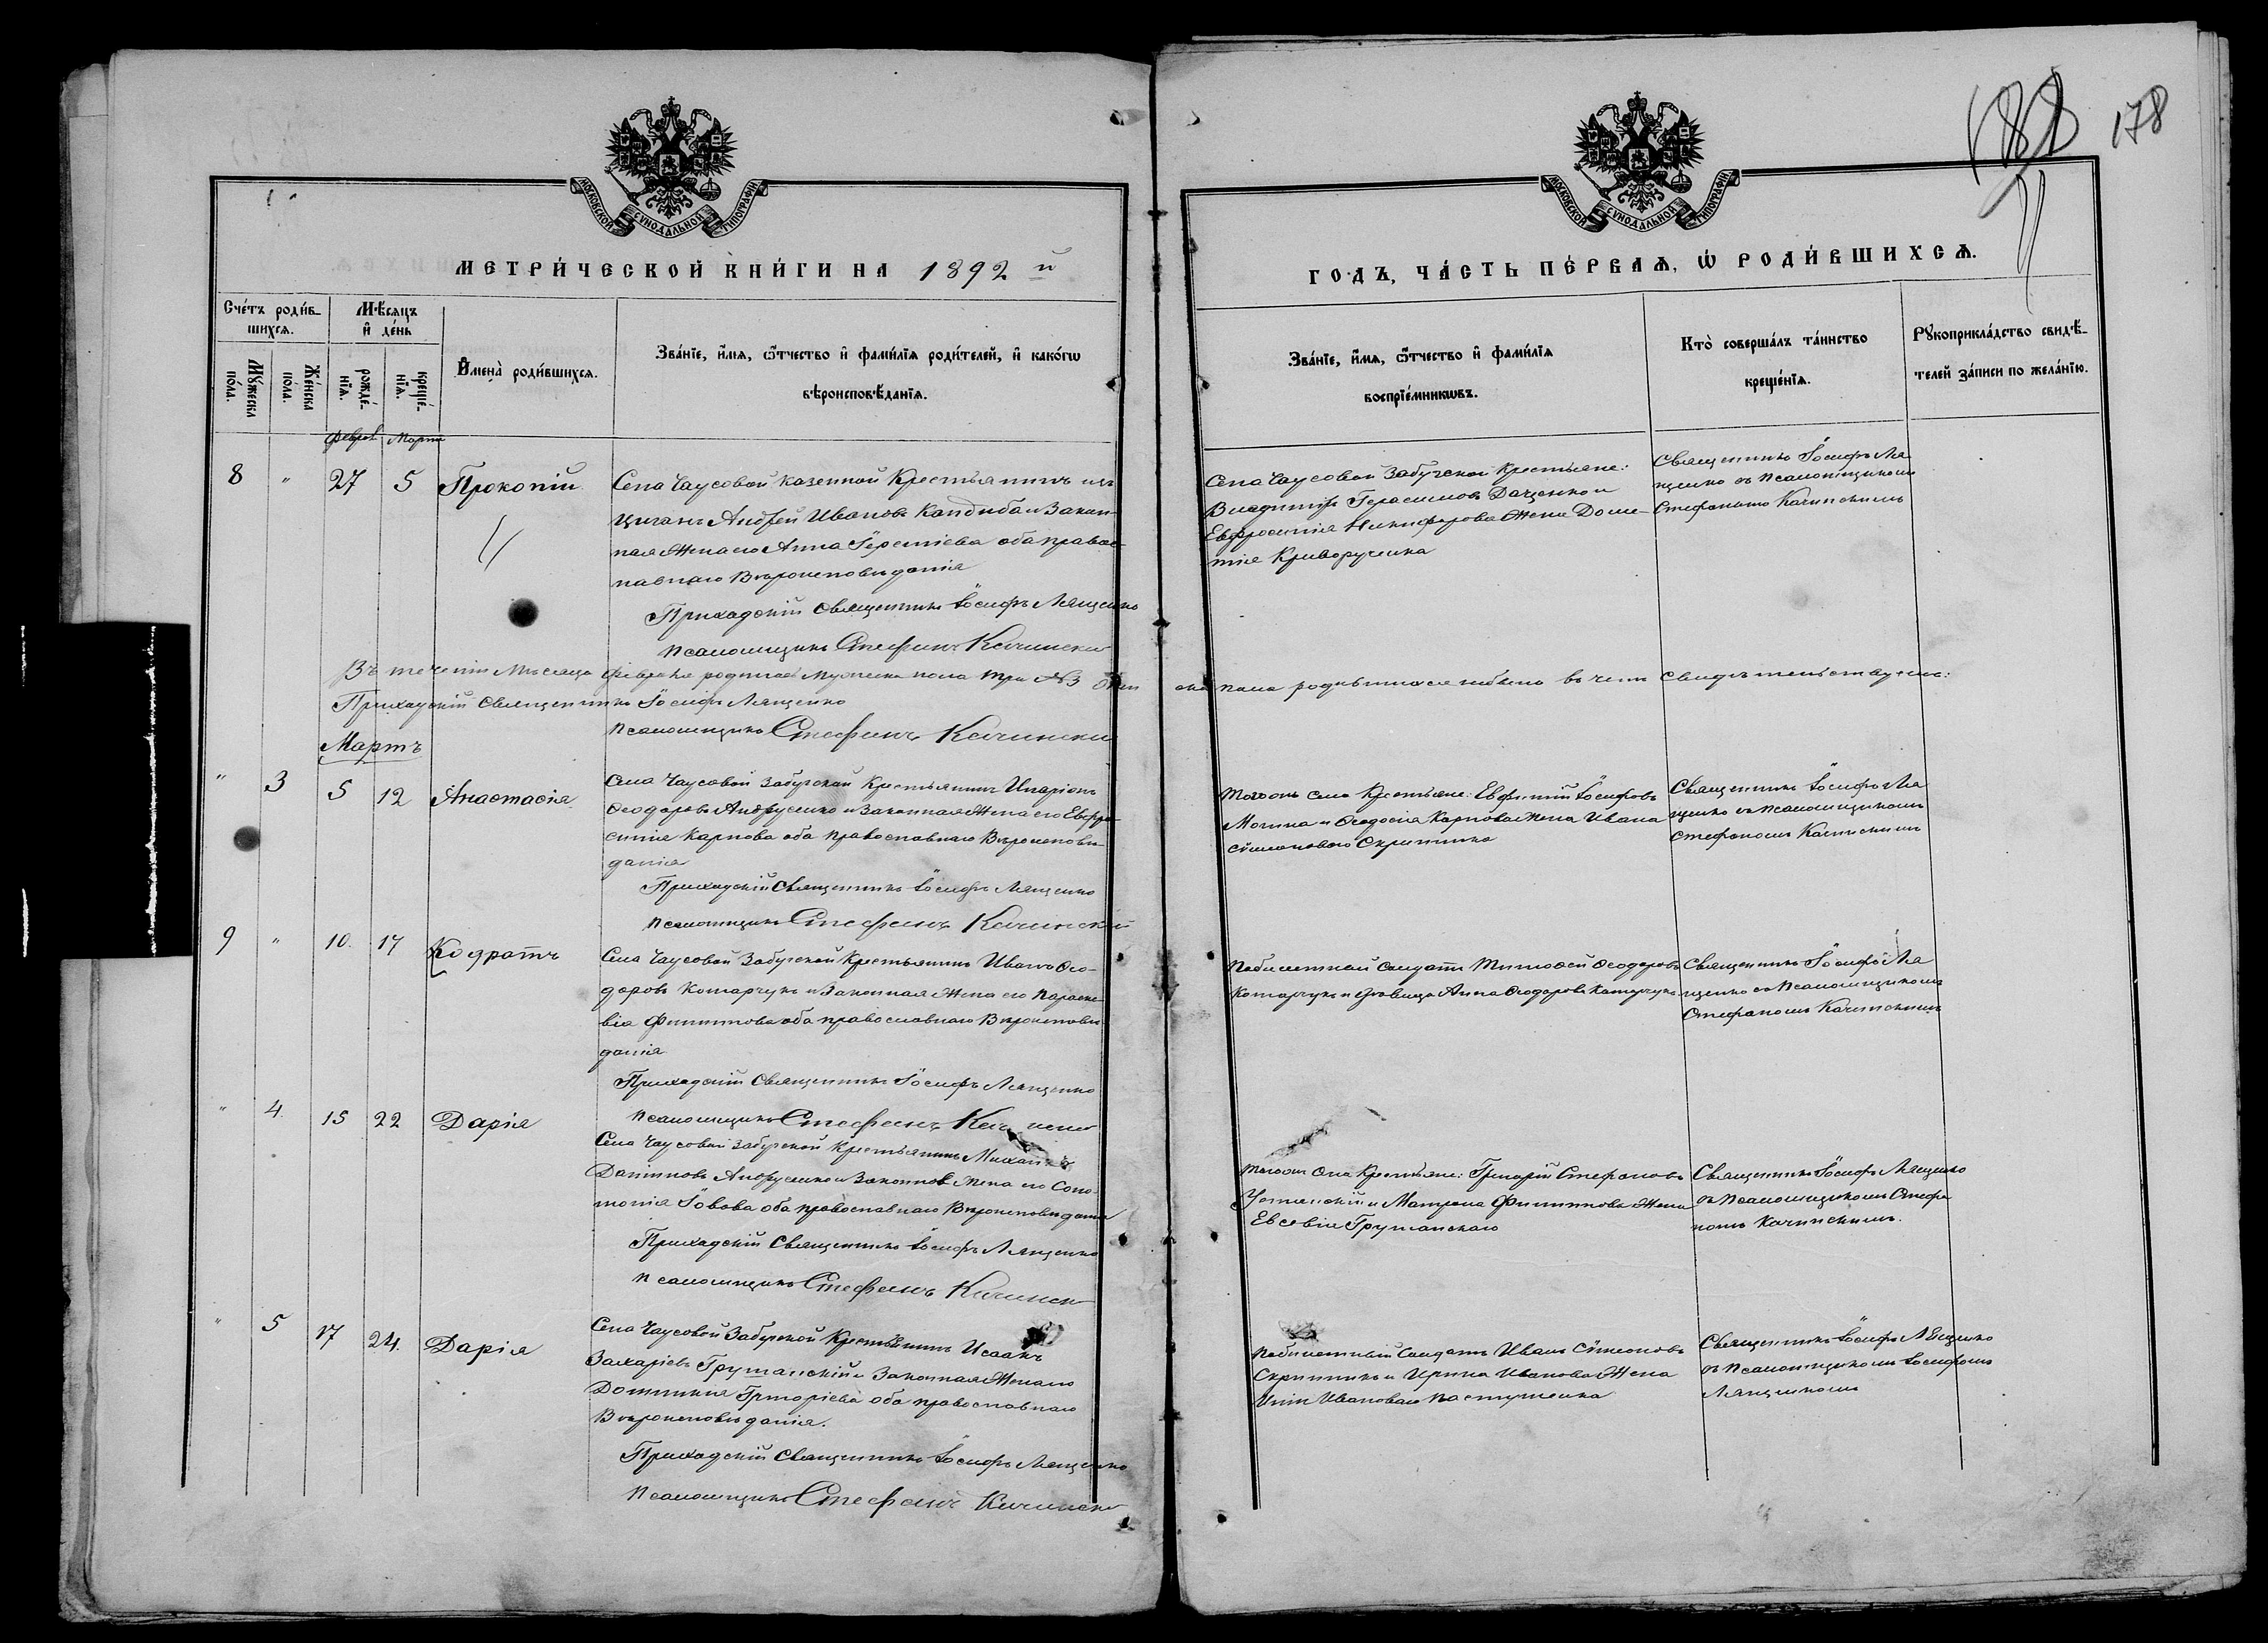 188 178
МОСКОВСКОЙ СУНОДАЛЬНОЙ ТИПОГРАФІИ
МОСКОВСКОЙ СУНОДАЛЬНОЙ ТИПОГРАФІИ
МЕТРИ́ЧЕСКОЙ КНИ́ГИ НА 1892 й
ГОДЪ, ЧА́СТЬ ПЕ́РВАѦ, Ѡ РОДИ́ВШИХСѦ.
Сче́тъ роди́в-
шихсѧ.
Мꙋ́жеска
по́ла.
Же́нска
по́ла.
Мѣ́сяцъ
и҆ де́нь
рожде́-
нїѧ.
креще́-
нїѧ.
И҆мена̀ роди́вшихсѧ.
Зва́нїе, и҆́мѧ, ѻ҆́тчество и҆ фами́лїѧ роди́телей, и҆ како́гѡ
вѣроисповѣ́данїѧ.
Зва́нїе, и҆́мѧ, ѻ҆́тчество и҆ фами́лїѧ
воспрїе́мникѡвъ.
Кто̀ соверша́лъ та́инство
креще́нїѧ.
Рꙋкоприкла́дство свидѣ́-
телей за́писи по жела́нїю.
Феврал Марта
8 " 27 5 Прокопій
Села Чаусовой казенной Крестьянинъ изъ
цыганъ Андрей Ивановъ Кандыба и Закон-
ная Жена его Анна Іереміева оба правос-
лавнаго Вѣроисповѣданія
Приходскій Священникъ Іосифъ Лященко
Псаломщикъ Стефанъ Качински
Села Чаусовой Забугской Крестьяне:
Владиміръ Герасимовъ Даценко и
Евфросинія Никифорова Жена Доме-
тія Криворученка
Священникъ Іосифъ Ля
щенко съ Псаломщикомъ
Стефаномъ Качинскимъ
Въ теченіи Мѣсяца Февраля родилось Мужеска пола три №3 Жен ска пола родившихся небыло въ чемъ свидѣтельствуемъ:
Приходскій Священникъ Іосифъ Лященко
Псаломщикъ Стефанъ Качински
Мартъ
" 3 5 12 Анастасія
Села Чаусовой Забугской Крестьянинъ Иларіонъ
Ѳеодоровъ Андрусенко и Законная Жена его Евфро-
синія Карпова оба православнаго Вѣроисповѣ-
данія
Приходскій Священникъ Іосифъ Лященко
Псаломщикъ Стефанъ Качинскій
Тогожъ Села Крестьяне: Евфимій Іосифовъ
Могила и Ѳеодосія Карпова Жена Ивана
Симеонового Скрипника
Священникъ Іосифъ Ля
щенко съ Псаломщикомъ
Стефаномъ Качинскимъ
9 " 10. 17 Кодратъ
Села Чаусовой Забугской Крестьянинъ Иванъ Ѳео-
доровъ Комарчукъ и Законная Жена его Параске
вія Филиппова оба православнаго Вѣроисповѣ
данія
Приходскій Священникъ Іосифъ Лященко
Псаломщикъ Стефанъ Качински
Побилетный Солдатъ Тимоѳей Ѳеодоровъ
Комарчукъ и дѣвица Анна Ѳеодорова Комарчукъ
Священникъ Іосифъ Ля
щенко съ Псаломщикомъ
Стефаномъ Качинскимъ
" 4. 15 22 Дарія
Села Чаусовой Забугской Крестьянинъ Михаилъ
Даніиловъ Андрусенко и Законная Жена его Соло-
монія Іовова оба православнаго Вѣроисповѣданія
Приходскій Священникъ Іосифъ Лященко
Псаломщикъ Стефанъ Качински
Тогожъ Села Крестьяне: Григорій Стефановъ
Уманскій и Матрона Филиппова Жена
Евсевія Грушанскаго
Священникъ Іосифъ Лященко
съ Псаломщикомъ Стефа
номъ Качинскимъ.
" 5 17 24. Дарія
Села Чаусовой Забугской Крестьянинъ Исаакъ
Захаріевъ Грушанскій и Законная Жена его
Домникія Григоріева оба православнаго
Вѣроисповѣданія.
Приходскій Священникъ Іосифъ Лященко
Псаломщикъ Стефанъ Качински
Побилетный Солдатъ Иванъ Симеоновъ
Скрипникъ и Ирина Иванова Жена
Ивановаго Пастушенка
Священникъ Іосифъ Лященко
съ Псаломщикомъ Іосифомъ
Лященкомъ